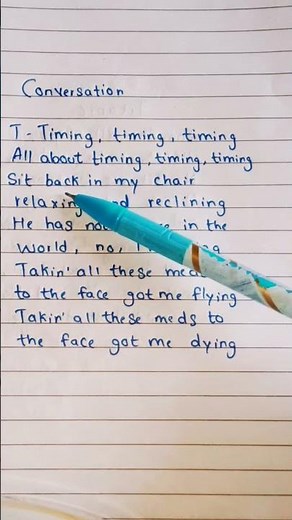 Conversation
T - Timing, timing, timing
All about timing, timing, timing
Sit back in my chair
reclining
He has in the
world, no,
Takin' all these
to the face got me flying
Takin' all these meds to
the face got me dying